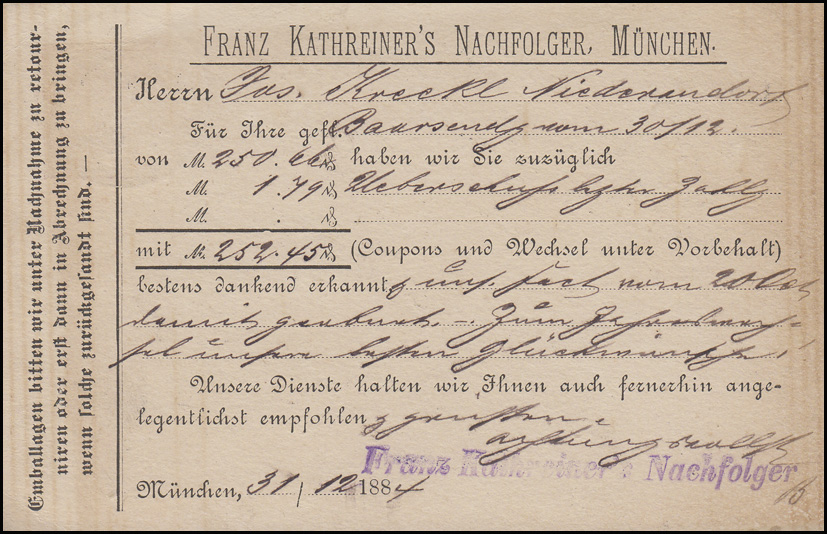 FRANZ KATHREINER'S NACHFOLGER, MÜNCHEN.
Herrn Jos. Kreckl Niederndorf
Für Ihre gefl. Baarsendg vom 30/12.
von M. 250.66 ₰ haben wir Sie zuzüglich
M. 1.79 ₰ Ueberschuss letzter Zahlg
M. . ₰
mit M. 252.45 ₰ (Coupons und Wechsel unter Vorbehalt)
bestens dankend erkannt & uns. Fact vom 20 Oct
damit – Zum Jahreswech-
sel unsere besten Glückwünsche!
Unsere Dienste halten wir Ihnen auch fernerhin ange-
legentlichst empfohlen & grüssen
achtungsvollst
Franz Kathreiner's Nachfolger
München, 31/12 1884
Emballagen bitten wir unter Nachnahme zu retour-
niren oder erst dann in Abrechnung zu bringen,
wenn solche zurückgesandt sind. —